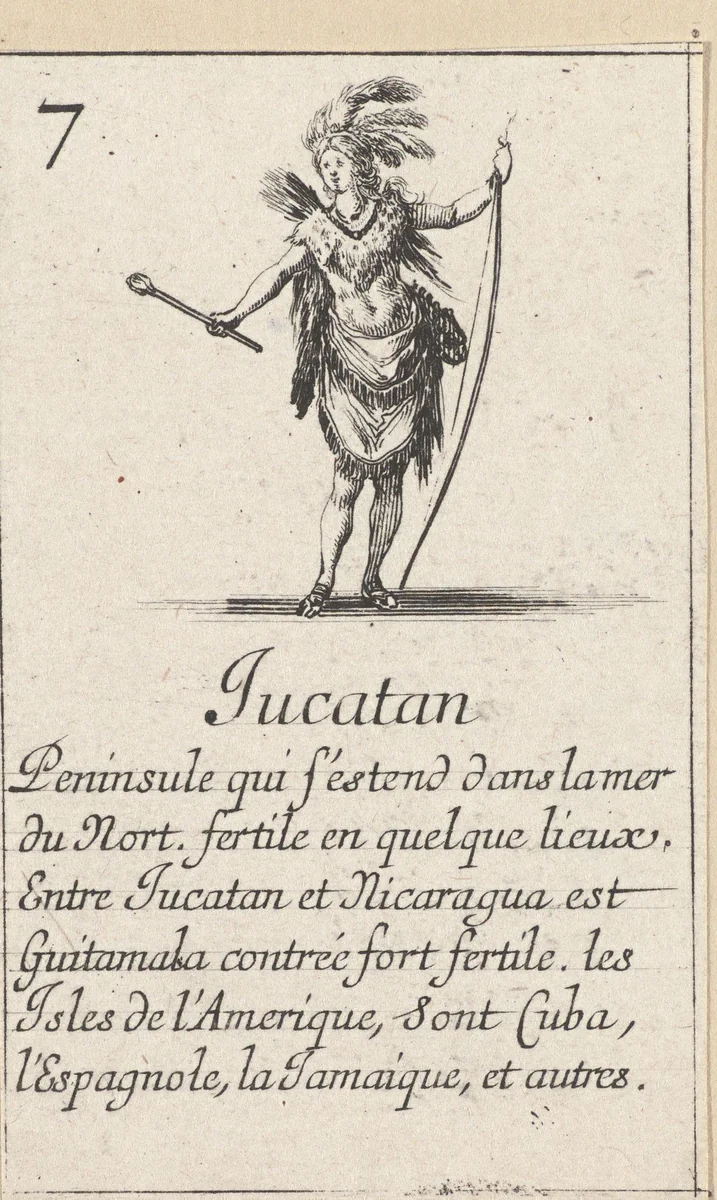 7
Jucatan
Peninsule qui s'éstend dans la mer
du Nort. fertile en quelque lieux.
Entre Jucatan et Nicaragua est
Guitamala contreé fort fertile. les
Isles de l'Amerique, sont Cuba,
l'Espagnole, la Jamaique, et autres.